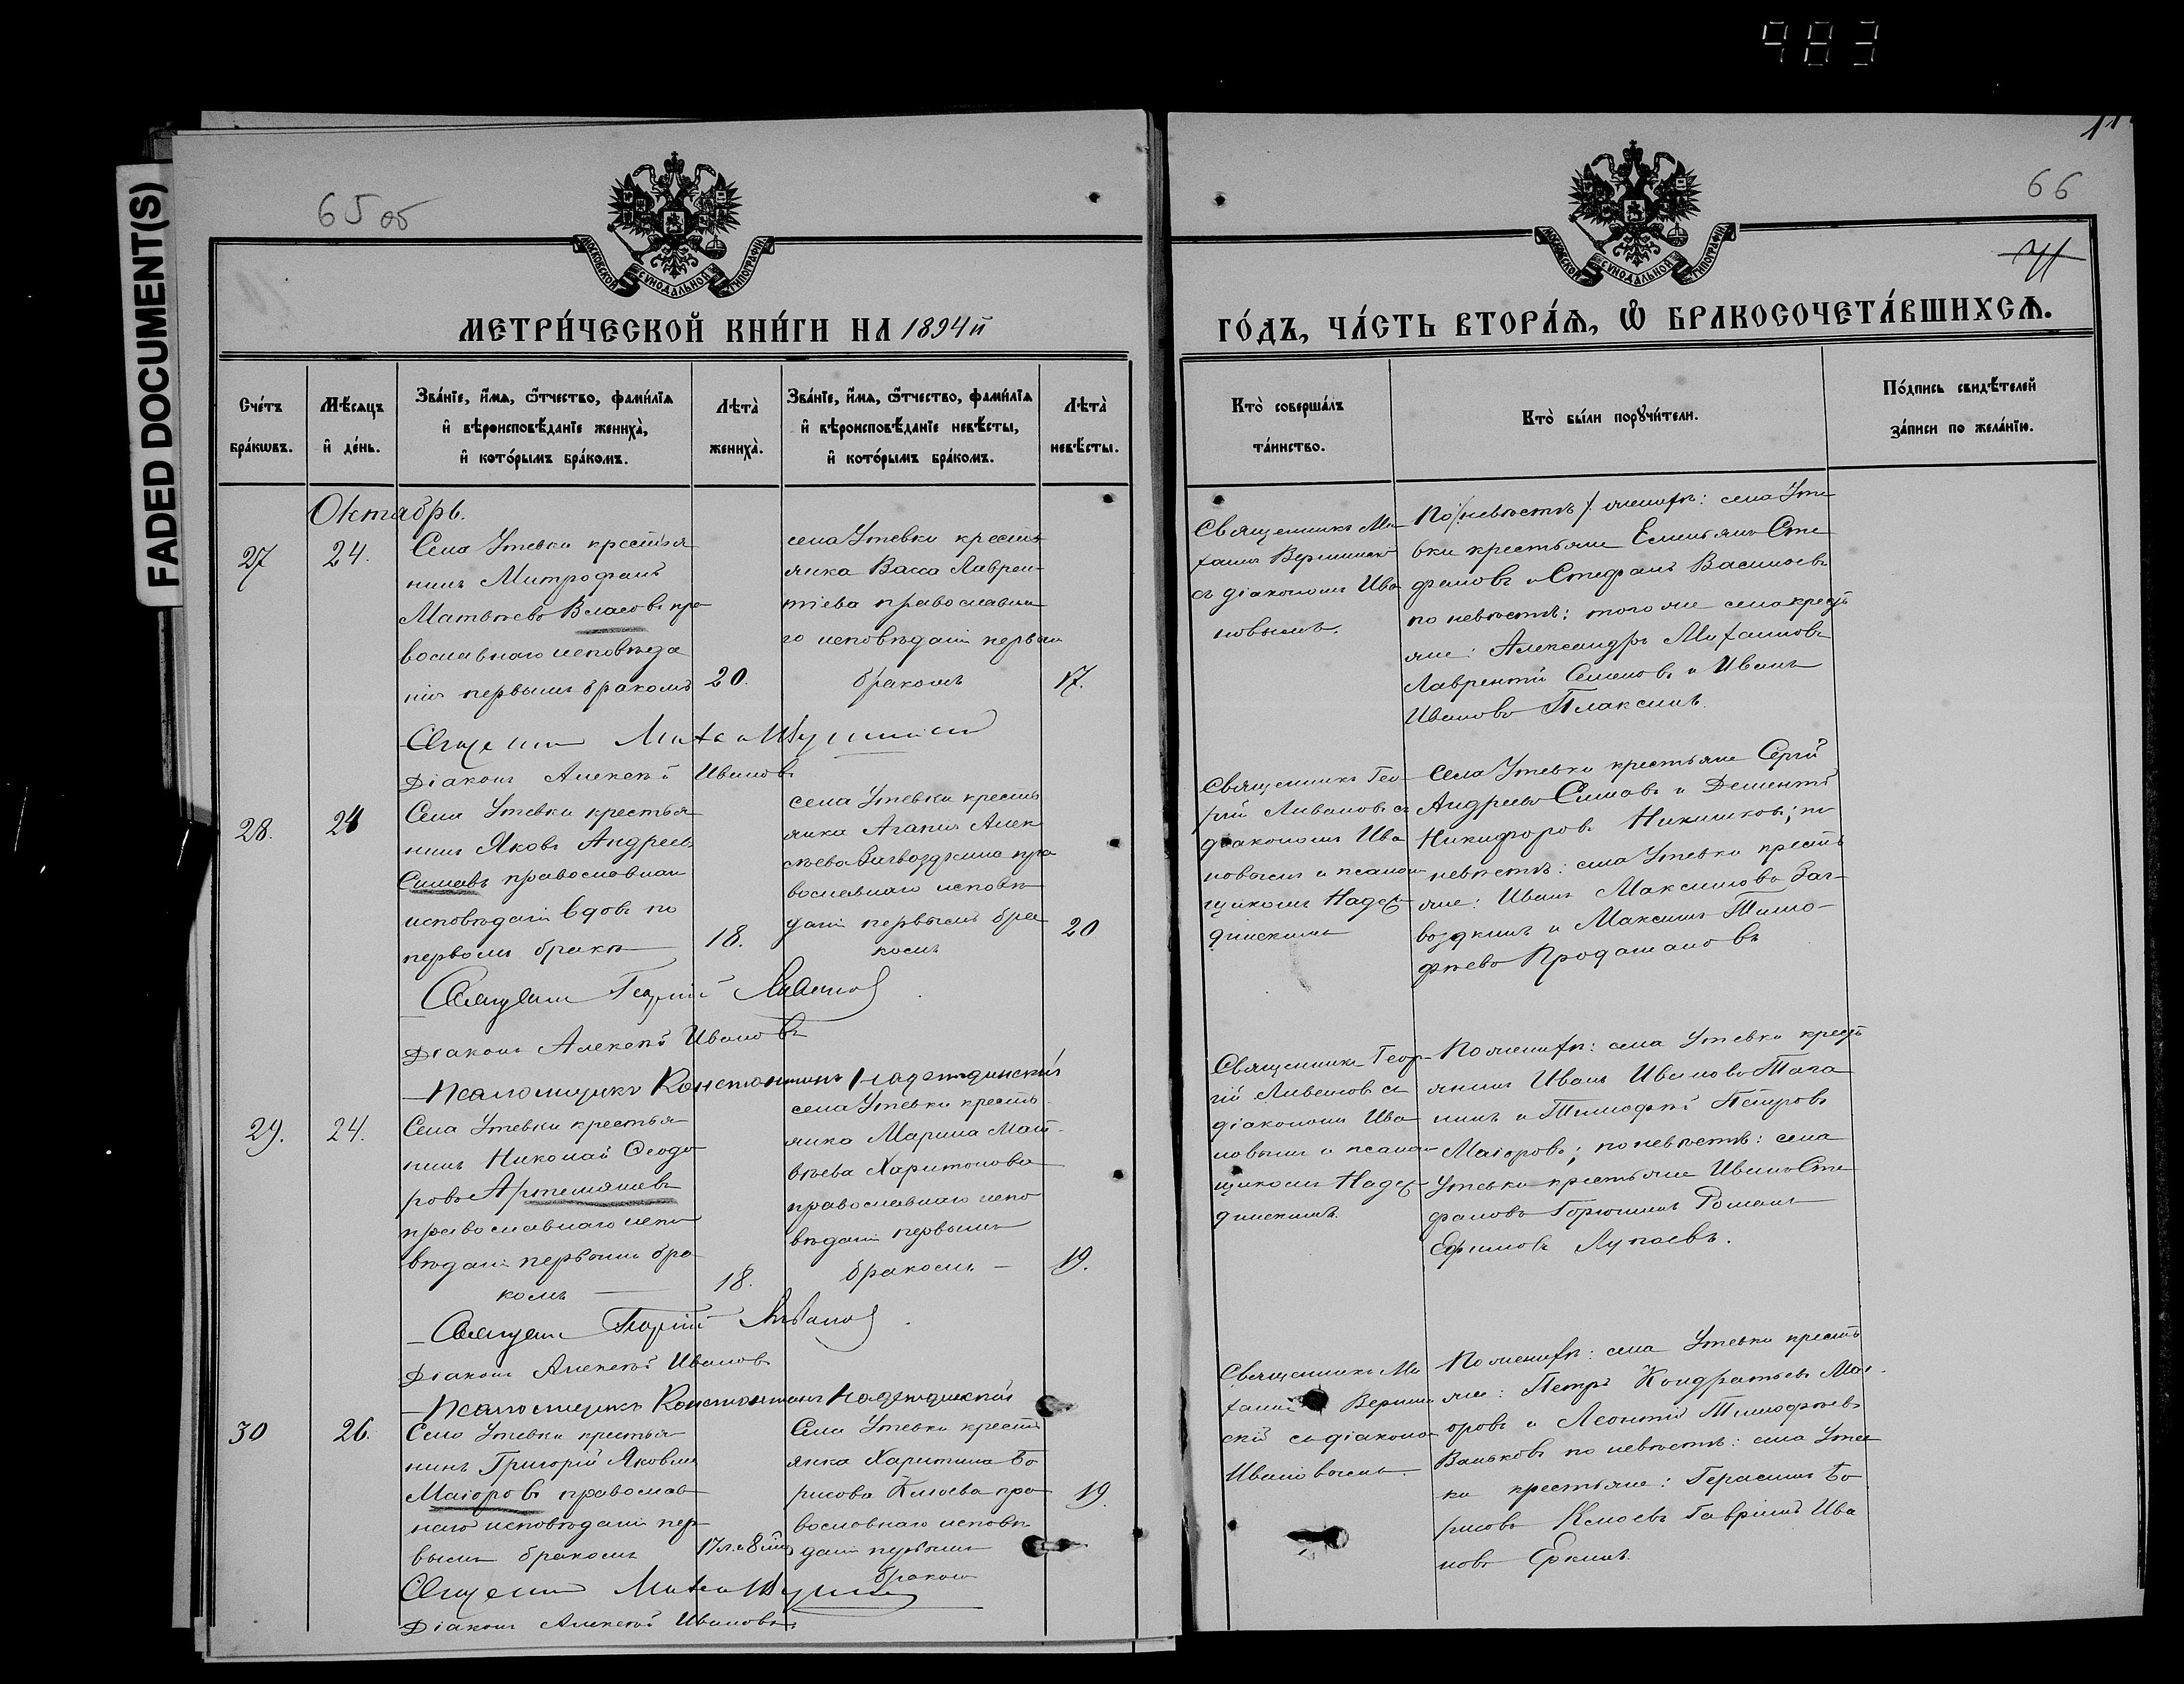 983
FADED DOCUMENT(S)
65 об
МОСКОВСКОЙ СѴНОДАЛЬНОЙ ТИПОГРАФІИ
МЕТРИ́ЧЕСКОЙ КНИ́ГИ НА 1894й
Сче́тъ бра́кѡвъ.
Мѣ́сяцъ и҆ де́нь.
Зва́нїе, и҆́мѧ, ѻ҆́тчество, фами́лїѧ
и҆ вѣроисповѣ́данїе жениха̀,
и҆ кото́рымъ бра́комъ.
Лѣта̀ жениха̀.
Зва́нїе, и҆́мѧ, ѻ҆́тчество, фами́лїѧ
и҆ вѣроисповѣ́данїе невѣ́сты,
и҆ кото́рымъ бра́комъ.
Лѣта̀ невѣ́сты.
Октябрь.
27
24.
Села Утевки крестья
нинъ Митрофанъ
Матвѣевъ Власовъ пра
вославнаго исповѣда
нія первымъ бракомъ
20.
села Утевки кресть
янка Васса Лаврен
тіева православна
го исповѣданія первым
бракомъ
17.
Діаконъ Алексѣй Ивановъ
28.
24
Села Утевки крестья
нинъ Яковъ Андреевъ
Симавъ православнаго
исповѣданія вдовъ по
первомъ бракѣ
18.
села Утевки кресть
янка Агапія Алек
сѣева Загвоздкина пра
вославнаго исповѣ
данія первымъ бра
комъ
20
Священникъ Георгій Ливановъ
Діаконъ Алексѣй Ивановъ
Псаломщикъ Константинъ Надеждинскій
29.
24.
Села Утевки крестья
нинъ Николай Ѳеодо
ровъ Артемяшевъ
православнаго испо
вѣданія первымъ бра
комъ
18.
села Утевки кресть
янка Марина Мат
вѣева Харитонова
православнаго испо
вѣданія первымъ
бракомъ
19.
Священникъ Георгій Ливановъ
Діаконъ Алексѣй Ивановъ
Псаломщикъ Константинъ Надеждинскій
30
26.
Села Утевки крестья
нинъ Григорій Яковлевъ
Маіоровъ православ
наго исповѣданія пер
вымъ бракомъ
17 л. 8 м.
Села Утевки кресть
янка Харитина Бо
рисова Клюева пра
вославнаго исповѣ
данія первымъ
бракомъ
19
Діаконъ Алексѣй Ивановъ
66
МОСКОВСКОЙ СѴНОДАЛЬНОЙ ТИПОГРАФІИ
ГО́ДЪ, ЧА́СТЬ ВТОРА́Ѧ, Ѡ҆ БРАКОСОЧЕТА́ВШИХСѦ.
Кто̀ соверша́лъ
та́инство.
Кто̀ бы́ли порꙋчи́тели.
По́дпись свидѣ́телей
за́писи по жела́нїю.
Священникъ Ми
хаилъ Вершинскій
съ діакономъ Ива
новымъ.
По женихѣ: села Уте
вки крестьяне Емельянъ Сте
фановъ и Стефанъ Васильевъ
по невѣстѣ: того же села кресть
яне: Александръ Михайловъ
Лаврентій Семеновъ и Иванъ
Ивановъ Плаксинъ.
Священникъ Геор
гій Ливановъ съ
діакономъ Ива
новымъ и псалом
щикомъ Надеж
динскимъ
Села Утевки крестьяне Сергій
Андреевъ Симавъ и Дементій
Никифоровъ Никишковъ; по
невѣстѣ: села Утевки кресть
яне: Иванъ Максимовъ Заг
воздкинъ и Максимъ Тимо
фѣевъ Продашановъ
Священникъ Геор
гій Ливановъ съ
діакономъ Ива
новымъ и псалом
щикомъ Надеж
динскимъ.
По женихѣ: села Утевки кресть
янинъ Иванъ Ивановъ Пана
нинъ и Тимофѣй Петровъ
Маіоровъ; по невѣстѣ: села
Утевки крестьяне Иванъ Сте
фановъ Горюшинъ Романъ
Ефимовъ Лупаевъ.
Священникъ Ми
хаилъ Вершин
скій съ діакономъ
Ивановымъ.
По женихѣ: села Утевки кресть
яне: Петръ Кондратьевъ Маі
оровъ и Леонтій Тимофѣевъ
Ваньковъ по невѣстѣ: села Утев
ки крестьяне: Герасимъ Бо
рисовъ Клюевъ Гавріилъ Ива
новъ Еркинъ.